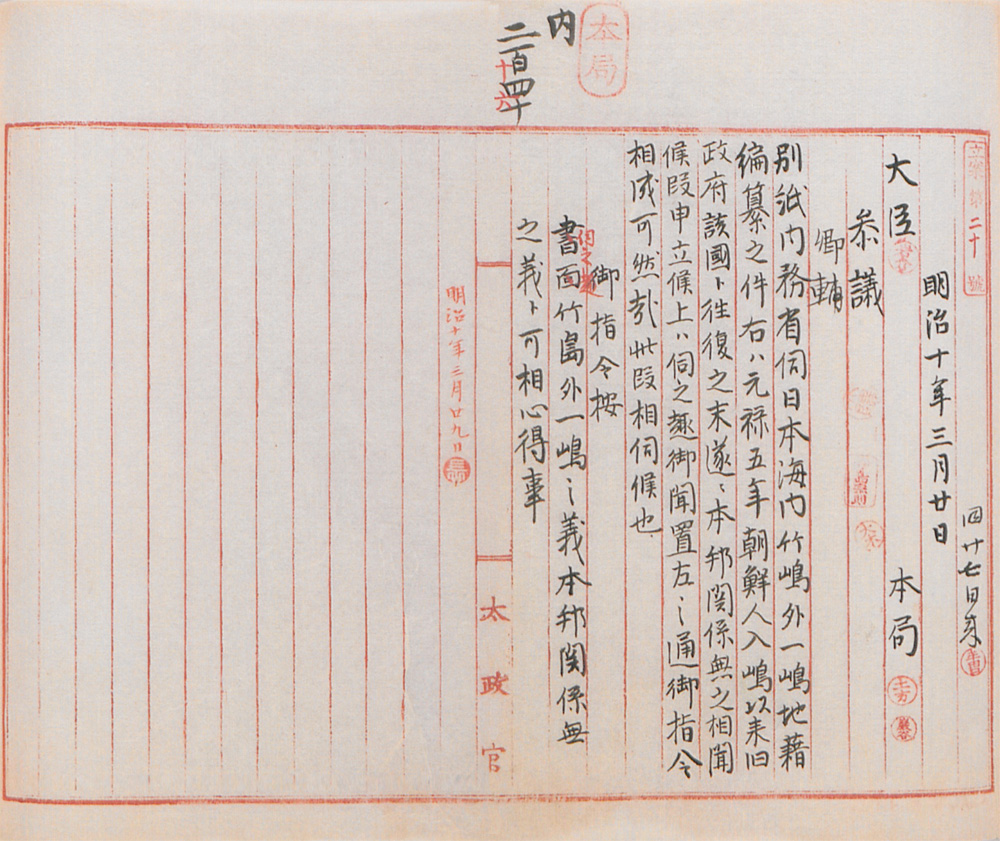 本局
内
二百四十
十六
立案第二十號
四月廿七日来
明治十年三月廿日
大臣
本局
参議
卿輔
別紙内務省伺日本海内竹嶋外一嶋地籍
編纂之件右ハ元禄五年朝鮮人入嶋以来旧
政府該國ト往復之末遂ニ本邦関係無之相聞
候段申立候上ハ伺之趣御聞置左之通御指令
相成可然哉此段相伺候也
御指令按
伺之趣
書面竹島外一嶋之義本邦関係無
之義ト可相心得事
明治十年三月廿九日
太政官